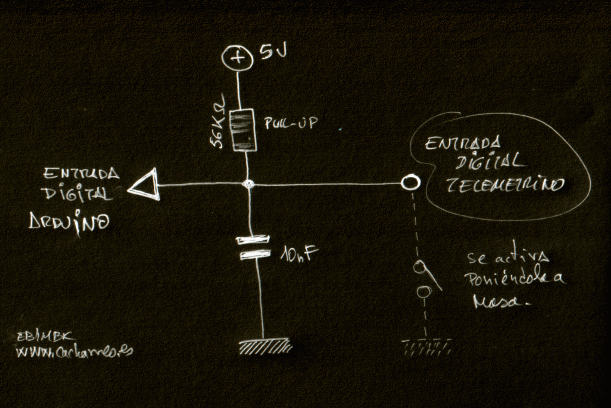 5V
56KΩ
PULL-UP
ENTRADA
DIGITAL
TELEMETRINO
ENTRADA
DIGITAL
ARDUINO
10nF
se activa
Poniéndola a
Masa.
www.cacharreo.es